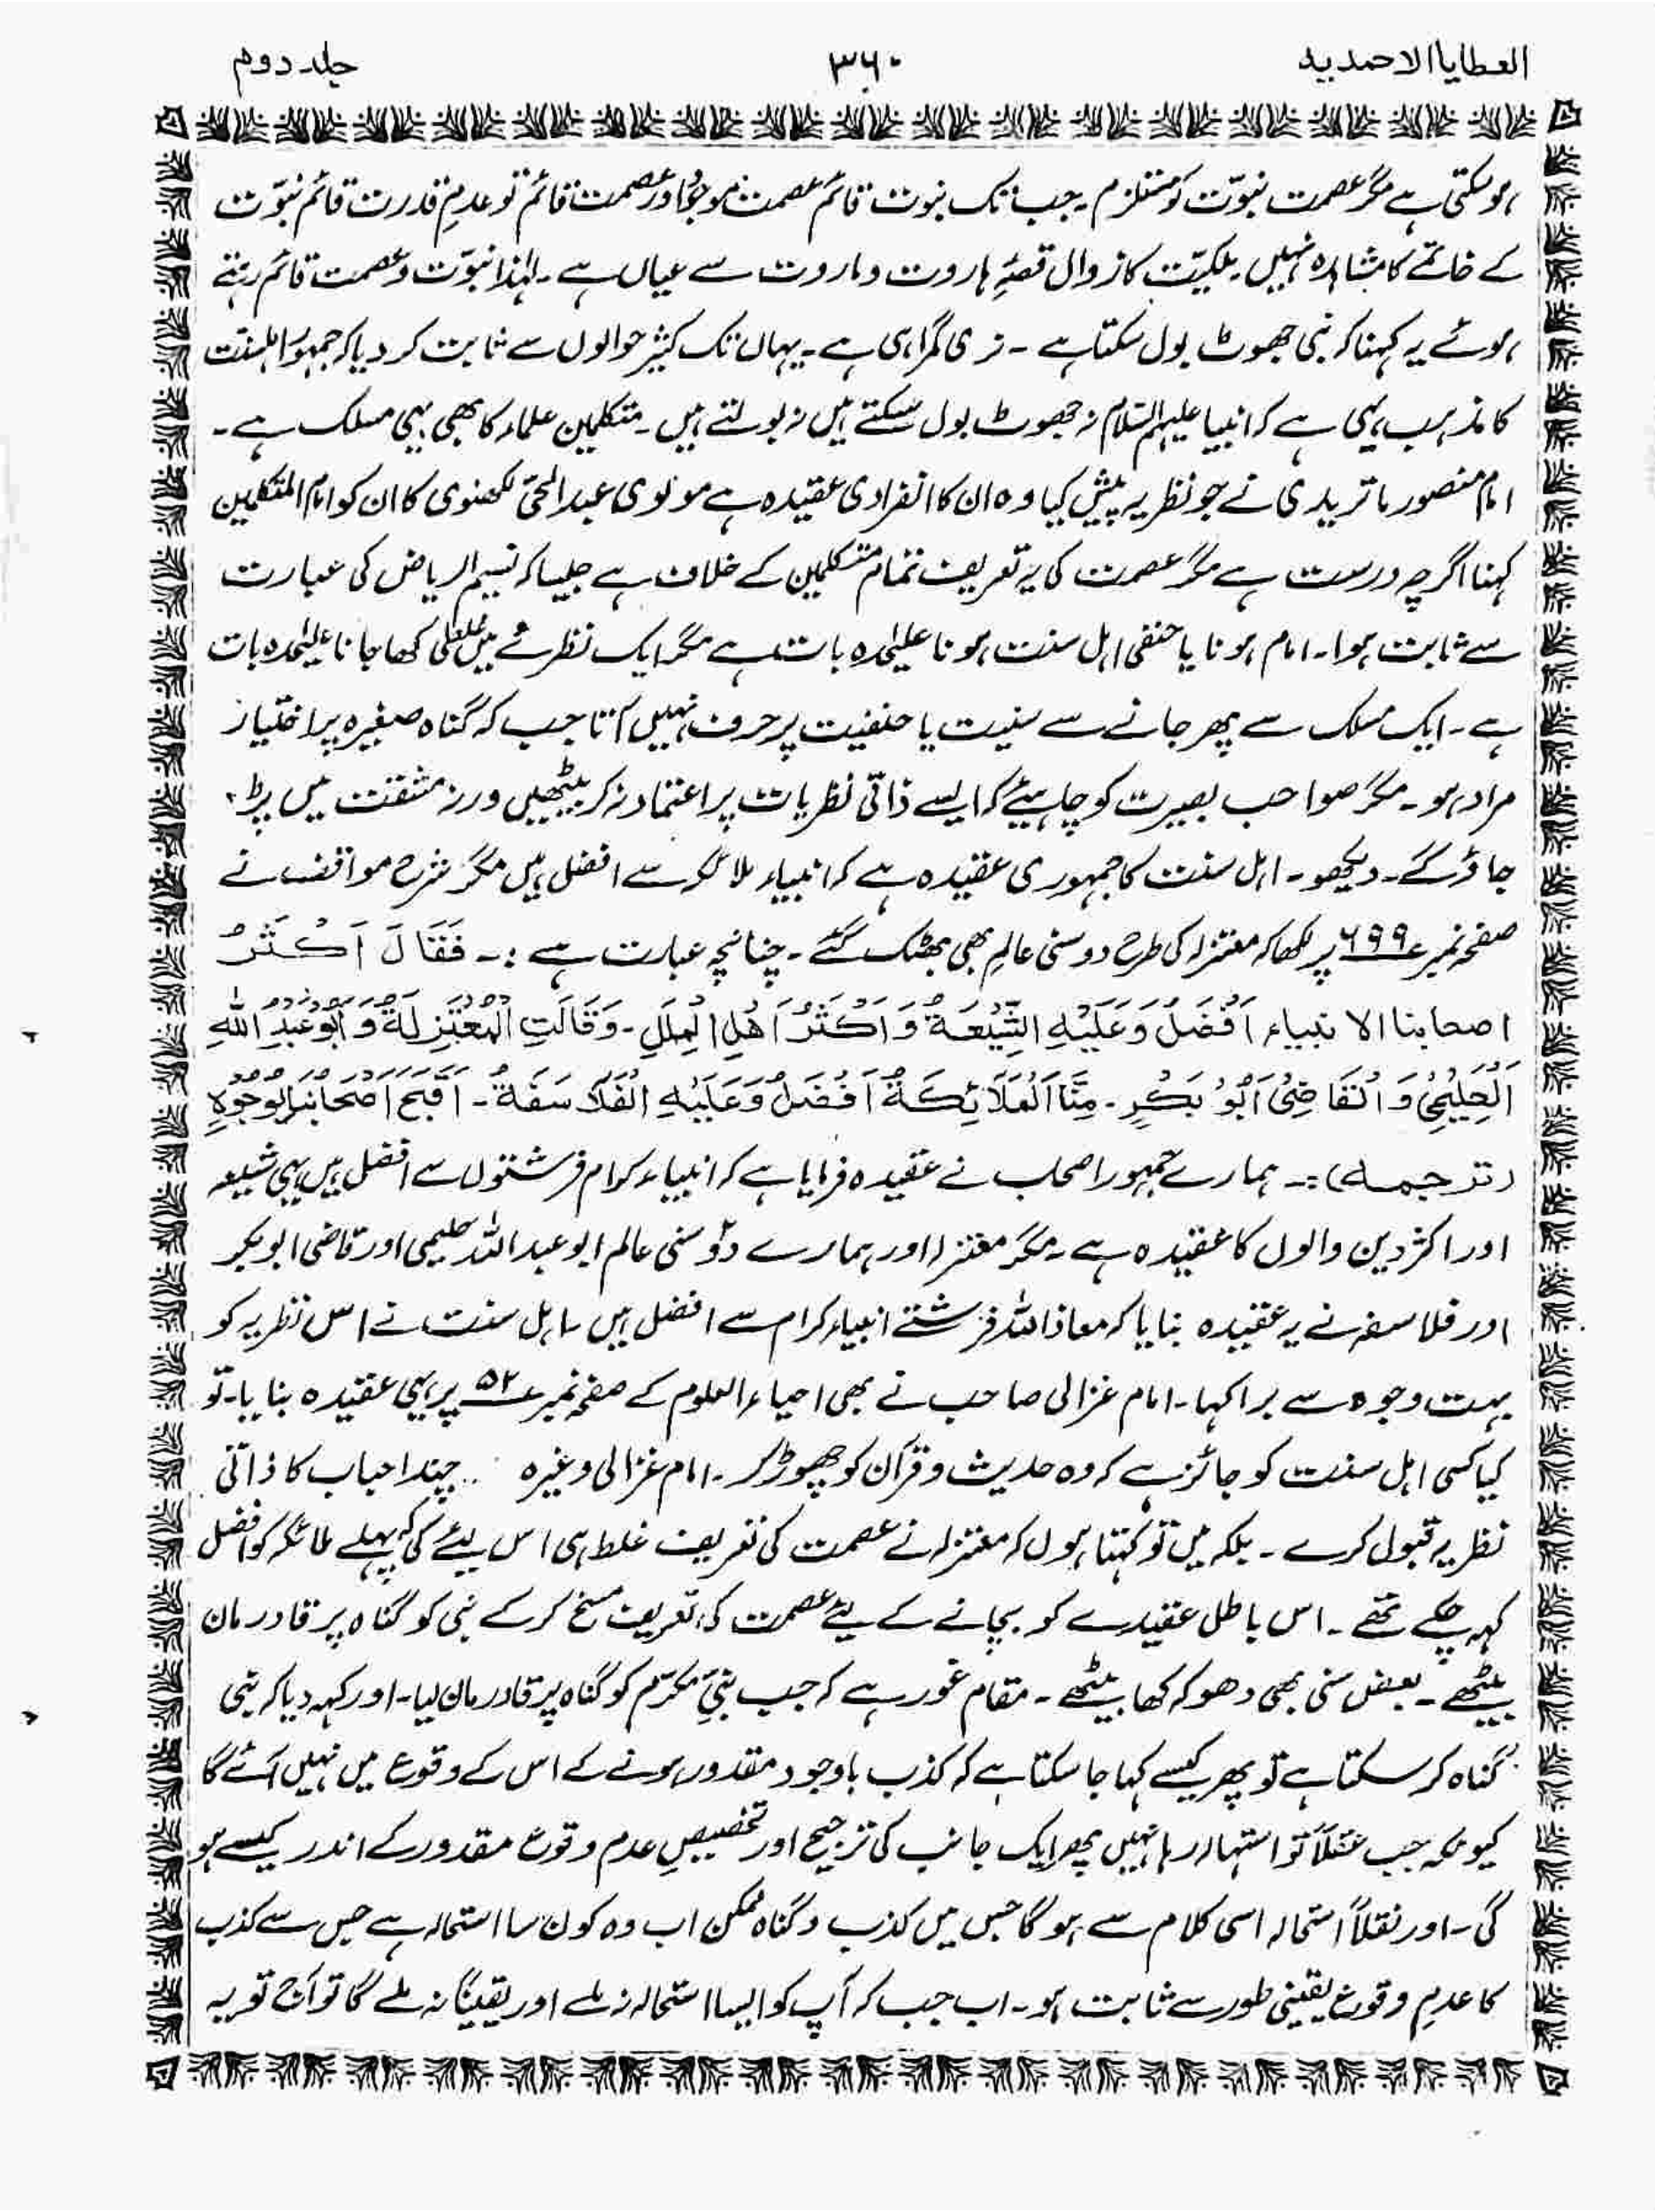 العطایا الاحمدیہ
۳۶۰
جلد دوم
ہو سکتی ہے مگر عصمت نبوّت کو مستلزم ۔ جب تک نبوت قائم عصمت موجود اور عصمت قائم تو عدمِ قدرت قائم نبوّت
کے خاتمے کا مشاہدہ نہیں ۔ ملکیّت کا زوال قصّۂ ہاروت و ماروت سے عیاں ہے ۔ لہٰذا نبوّت و عصمت قائم رہتے
ہوئے یہ کہنا کہ نبی جھوٹ بول سکتا ہے ۔ نری گمراہی ہے ۔ یہاں تک کثیر حوالوں سے ثابت کر دیا کہ جمہور اہلسنت
کا مذہب یہی ہے کہ انبیا علیہم السّلام نہ جھوٹ بول سکتے ہیں نہ بولتے ہیں ۔ متکلمین علماء کا بھی یہی مسلک ہے ۔
امام منصور ماتریدی نے جو نظریہ پیش کیا وہ ان کا انفرادی عقیدہ ہے مولوی عبدالحیّ لکھنوی کا ان کو امام المتکلمین
کہنا اگرچہ درست ہے مگر عصمت کی یہ تعریف تمام متکلمین کے خلاف ہے جیسا کہ نسیم الریاض کی عبارت
سے ثابت ہوا ۔ امام ہونا یا حنفی اہل سنت ہونا علیٰحدہ بات ہے مگر ایک نظریے میں غلطی کھا جانا علیٰحدہ بات
ہے ۔ ایک مسلک سے پھر جانے سے سنیت یا حنفیت پر حرف نہیں آتا جب کہ گناہ صغیرہ پر اختیار
مراد ہو ۔ مگر صواحب بصیرت کو چاہیئے کہ ایسے ذاتی نظریات پر اعتماد نہ کر بیٹھیں ورنہ مشقت میں پڑ
جاؤ گے ۔ دیکھو ۔ اہل سنت کا جمہوری عقیدہ ہے کہ انبیاء ملائکہ سے افضل ہیں مگر شرح مواقف نے
صفحہ نمبر ۶۹۹ پر لکھا کہ معتزلہ کی طرح دو سنی عالم بھی بھٹک گئے ۔ چنانچہ عبارت ہے :۔ فَقَالَ اَکْثَرُ
اصحابنا الانبیاء اَفْضَلُ وَعَلَیْہِ الشِّیْعَۃُ وَاَکْثَرُ اَھْلِ الْمِلَلِ ۔ وَقَالَتِ الْمُعْتَزِلَۃُ وَاَبُوْعَبْدِ اللّٰہِ
اَلْحَلِیْمِیُّ وَالْقَاضِیُ اَبُوْ بَکْرٍ ۔ مِنَّا اَلْمَلَائِکَۃُ اَفْضَلُ وَعَلَیْہِ الْفَلَاسَفَۃُ ۔ اَقْبَحَ اَصْحَابُنَا بِوُجُوْہٍ
(ترجمہ) :۔ ہمارے جمہور اصحاب نے عقیدہ فرمایا ہے کہ انبیاء کرام فرشتوں سے افضل ہیں یہی شیعہ
اور اکثر دین والوں کا عقیدہ ہے ۔ مگر معتزلہ اور ہمارے دو سنی عالم ابو عبد اللہ حلیمی اور قاضی ابو بکر
اور فلاسفہ نے یہ عقیدہ بنایا کہ معاذ اللہ فرشتے انبیاء کرام سے افضل ہیں ۔ اہل سنت نے اس نظریہ کو
بہت وجوہ سے برا کہا ۔ امام غزالی صاحب نے بھی احیاء العلوم کے صفحہ نمبر ۵۲ پر یہی عقیدہ بنایا ۔ تو
کیا کسی اہل سنت کو جائز ہے کہ وہ حدیث و قرآن کو چھوڑ کر ۔ امام غزالی وغیرہ چند احباب کا ذاتی
نظریہ قبول کرے ۔ بلکہ میں تو کہتا ہوں کہ معتزلہ نے عصمت کی تعریف غلط ہی اس لیئے کی کہ پہلے ملائکہ کو افضل
کہہ چکے تھے ۔ اس باطل عقیدے کو بچانے کے لیئے عصمت کی تعریف مسخ کر کے نبی کو گناہ پر قادر مان
بیٹھے ۔ بعض سنی بھی دھوکہ کھا بیٹھے ۔ مقام غور ہے کہ جب نبیِّ مکرّم کو گناہ پر قادر مان لیا ۔ اور کہہ دیا کہ نبی
گناہ کر سکتا ہے تو پھر کیسے کہا جا سکتا ہے کہ کذب باوجود مقدور ہونے کے اس کے وقوع میں نہیں آئے گا
کیونکہ جب عقلاً تو استہالہ رہا نہیں پھر ایک جانب کی ترجیح اور تخصیصِ عدم وقوع مقدور کے اندر کیسے ہو
گی ۔ اور نقلاً استحالہ اسی کلام سے ہو گا جس میں کذب و گناہ ممکن اب وہ کون سا استحالہ ہے جس سے کذب
کا عدمِ وقوع یقینی طور سے ثابت ہو ۔ اب جب کہ آپ کو ایسا استحالہ نہ ملے اور یقیناً نہ ملے گا تو آج تو یہ